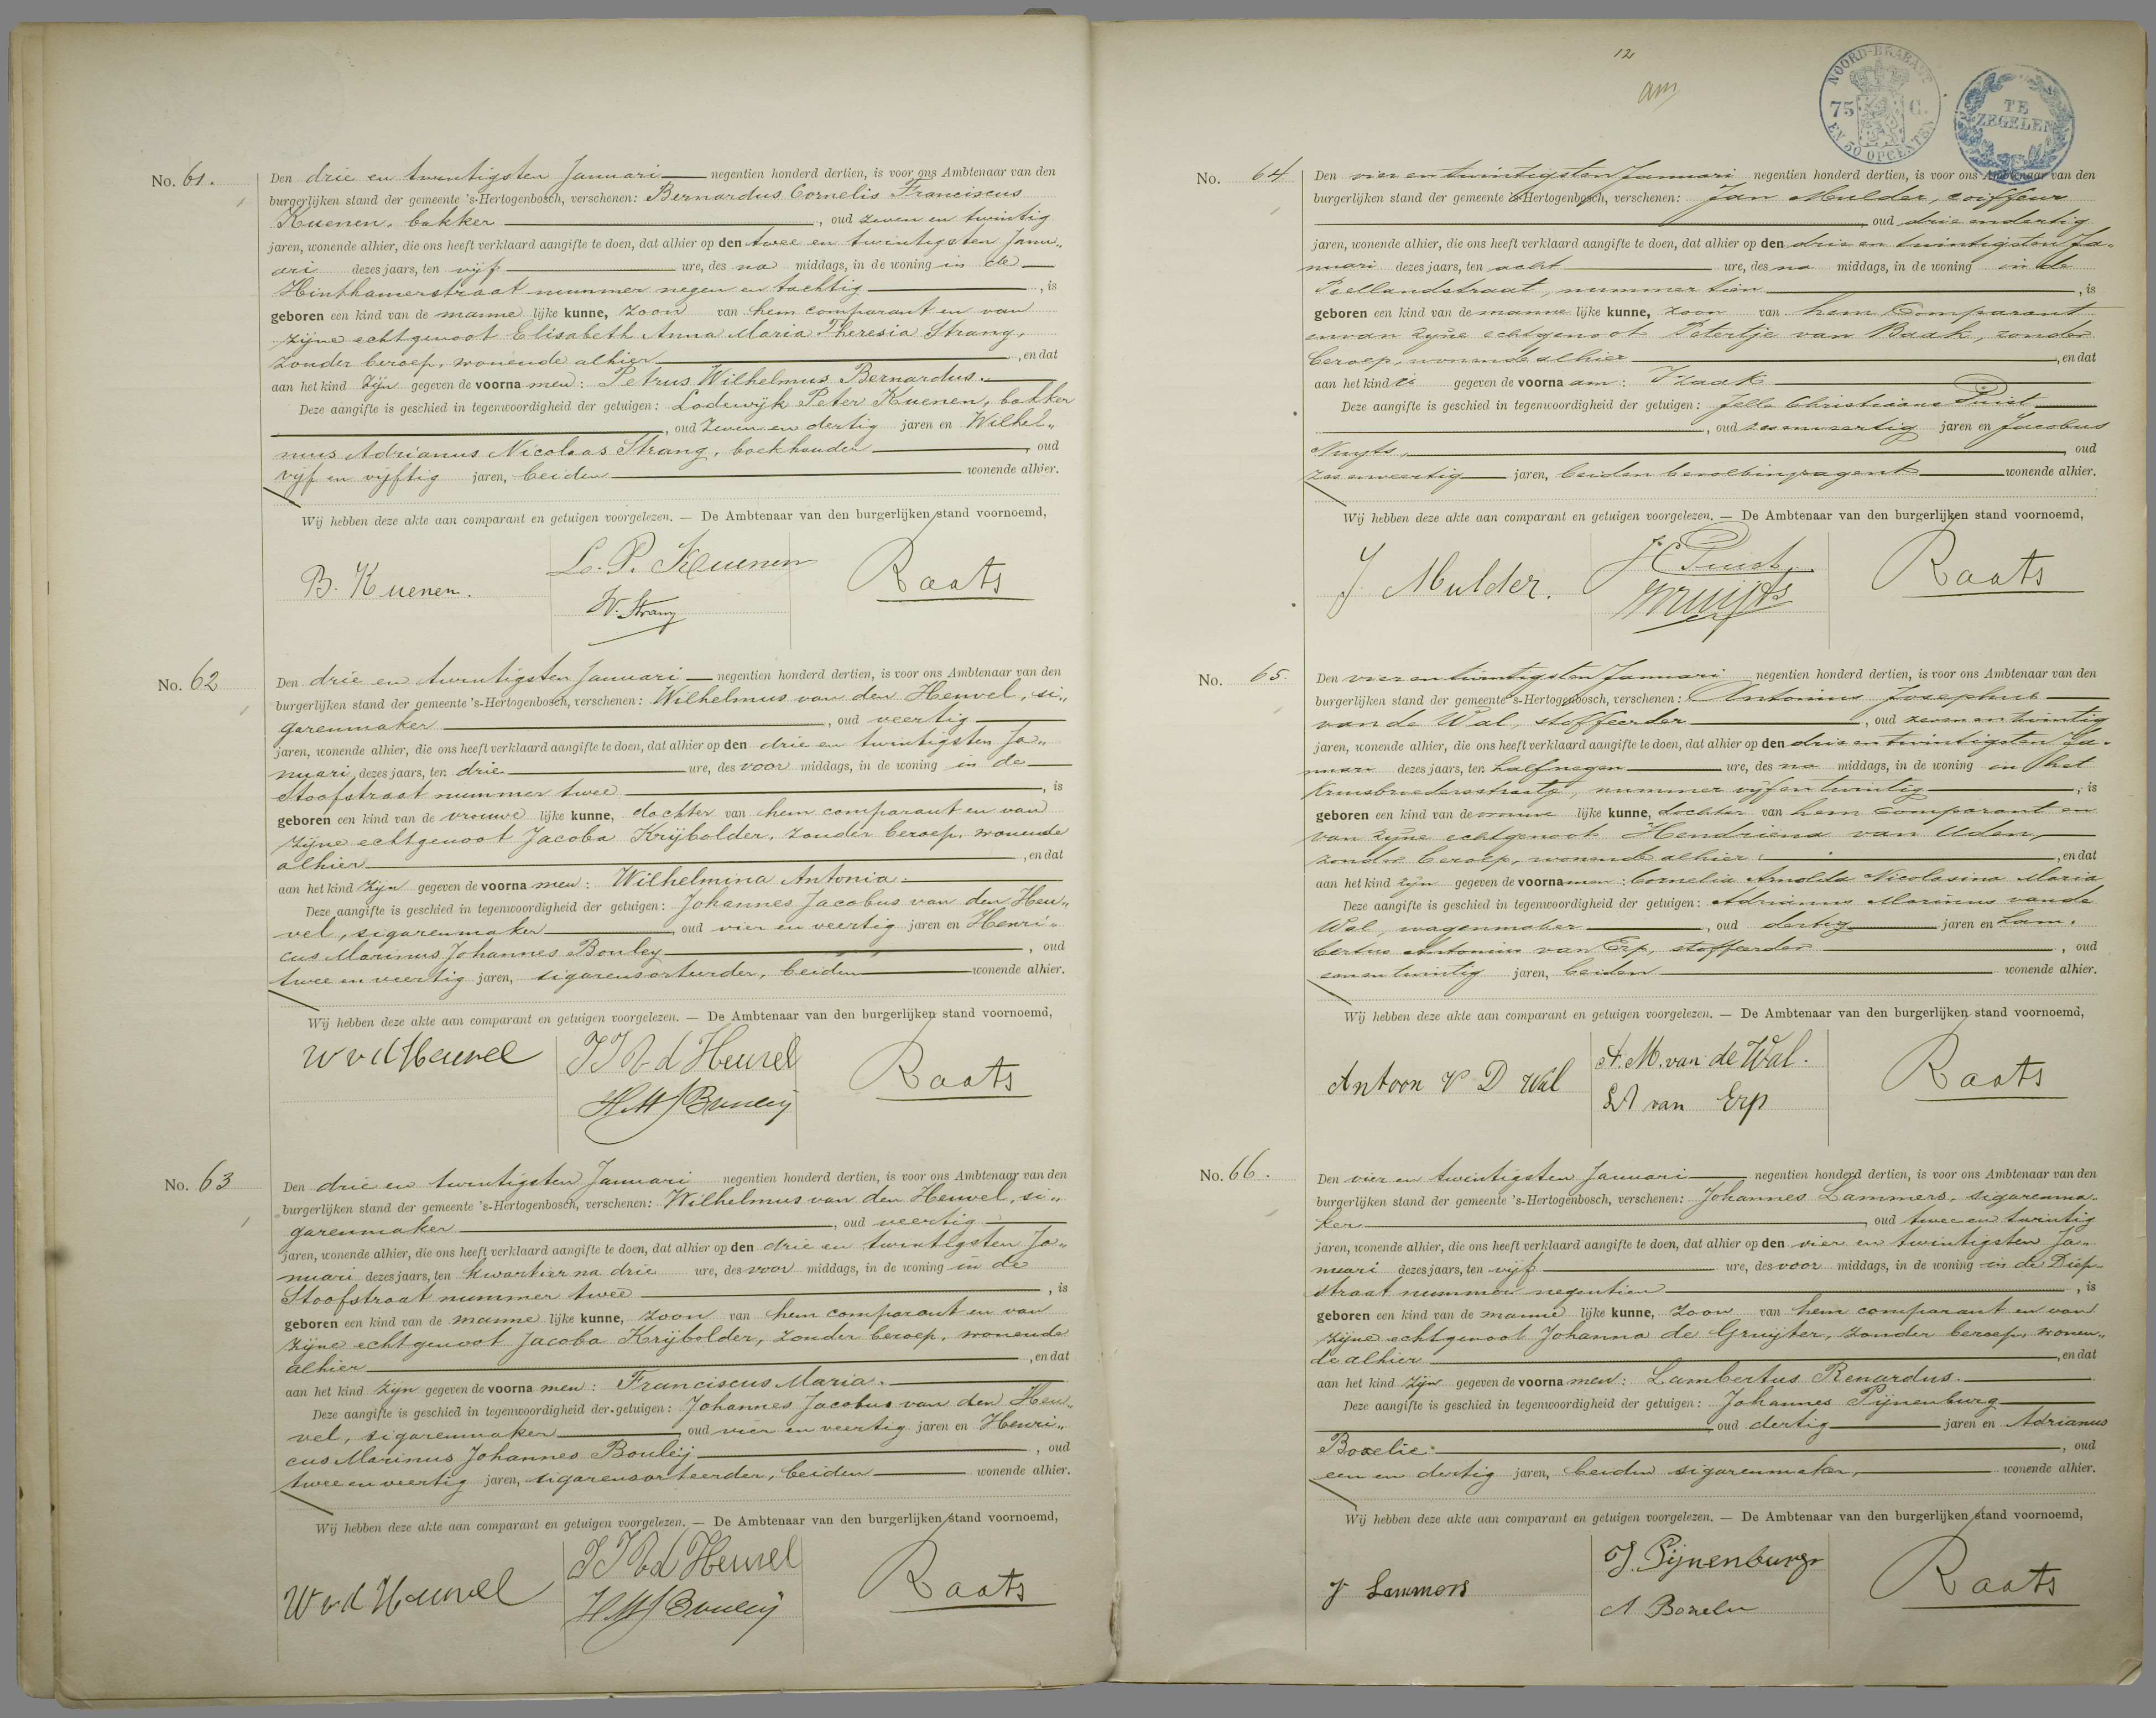 No. 61.
Den drie en twintigsten Januari negentien honderd dertien, is voor ons Ambtenaar van den
burgerlijken stand der gemeente 's-Hertogenbosch, verschenen: Bernardus Cornelis Franciscus
Kuenen, bakker, oud zeven en twintig
jaren, wonende alhier, die ons heeft verklaard aangifte te doen, dat alhier op den twee en twintigsten Janu„
ari dezes jaars, ten vijf ure, des na middags, in de woning in de
Hinthamerstraat nummer negen en tachtig, is
geboren een kind van de manne lijke kunne, zoon van hem comparant en van
zijne echtgenoot Elisabeth Anna Maria Theresia Strang,
zonder beroep, wonende alhier, en dat
aan het kind zijn gegeven de voorna men: Petrus Wilhelmus Bernardus.
Deze aangifte is geschied in tegenwoordigheid der getuigen: Lodewijk Peter Kuenen, bakker
, oud zeven en dertig jaren en Wilhel„
mus Adrianus Nicolaas Strang, boekhouder, oud
vijf en vijftig jaren, beiden wonende alhier.
Wij hebben deze akte aan comparant en getuigen voorgelezen. — De Ambtenaar van den burgerlijken stand voornoemd,
B. Kuenen. L. P. Kuenen Raats
W. Strang
No. 62
Den drie en twintigsten Januari negentien honderd dertien, is voor ons Ambtenaar van den
burgerlijken stand der gemeente 's-Hertogenbosch, verschenen: Wilhelmus van den Heuvel, si„
garenmaker, oud veertig
jaren, wonende alhier, die ons heeft verklaard aangifte te doen, dat alhier op den drie en twintigsten Ja„
nuari dezes jaars, ten drie ure, des voor middags, in de woning in de
Stoofstraat nummer twee, is
geboren een kind van de vrouwe lijke kunne, dochter van hem comparant en van
zijne echtgenoot Jacoba Krijbolder, zonder beroep, wonende
alhier, en dat
aan het kind zijn gegeven de voorna men: Wilhelmina Antonia.
Deze aangifte is geschied in tegenwoordigheid der getuigen: Johannes Jacobus van den Heu„
vel, sigarenmaker oud vier en veertig jaren en Henri„
cus Marinus Johannes Bouley, oud
twee en veertig jaren, sigarensorteerder, beiden wonende alhier.
Wij hebben deze akte aan comparant en getuigen voorgelezen. — De Ambtenaar van den burgerlijken stand voornoemd,
W v d Heuvel J J v d Heuvel Raats
H M J Bouley
No. 63
Den drie en twintigsten Januari negentien honderd dertien, is voor ons Ambtenaar van den
burgerlijken stand der gemeente 's-Hertogenbosch, verschenen: Wilhelmus van den Heuvel, si„
garenmaker, oud veertig
jaren, wonende alhier, die ons heeft verklaard aangifte te doen, dat alhier op den drie en twintigsten Ja„
nuari dezes jaars, ten kwartier na drie ure, des voor middags, in de woning in de
Stoofstraat nummer twee, is
geboren een kind van de manne lijke kunne, zoon van hem comparant en van
zijne echtgenoot Jacoba Krijbolder, zonder beroep, wonende
alhier, en dat
aan het kind zijn gegeven de voorna men: Franciscus Maria.
Deze aangifte is geschied in tegenwoordigheid der getuigen: Johannes Jacobus van den Heu„
vel, sigarenmaker oud vier en veertig jaren en Henri„
cus Marinus Johannes Bouleij, oud
twee en veertig jaren, sigarensorteerder, beiden wonende alhier.
Wij hebben deze akte aan comparant en getuigen voorgelezen. — De Ambtenaar van den burgerlijken stand voornoemd,
W v d Heuvel J J v d Heuvel Raats
H M J Bouleij
12
NOORD-BRABANT
75 C.
EN 50 OPCENTEN
TE
ZEGELEN
No. 64
Den vier en twintigsten Januari negentien honderd dertien, is voor ons Ambtenaar van den
burgerlijken stand der gemeente 's-Hertogenbosch, verschenen: Jan Mulder, coiffeur
, oud drie en dertig
jaren, wonende alhier, die ons heeft verklaard aangifte te doen, dat alhier op den drie en twintigsten Ja„
nuari dezes jaars, ten acht ure, des na middags, in de woning in de
nummer tien, is
geboren een kind van de manne lijke kunne, zoon van hem Comparant
en van zijne echtgenoot Petertje van Baak, zonder
beroep, wonende alhier, en dat
aan het kind is gegeven de voorna am: Izaak
Deze aangifte is geschied in tegenwoordigheid der getuigen: Jelle Christiaans Puist
, oud zes en veertig jaren en Jacobus
Nuyts, oud
zes en veertig jaren, beiden wonende alhier.
Wij hebben deze akte aan comparant en getuigen voorgelezen. — De Ambtenaar van den burgerlijken stand voornoemd,
J Mulder. J C Puist Raats
No. 65.
Den vier en twintigsten Januari negentien honderd dertien, is voor ons Ambtenaar van den
burgerlijken stand der gemeente 's-Hertogenbosch, verschenen: Antonius Josephus
van de Wal, stoffeerder, oud zeven en twintig
jaren, wonende alhier, die ons heeft verklaard aangifte te doen, dat alhier op den drie en twintigsten Ja„
nuari dezes jaars, ten half negen ure, des na middags, in de woning in het
Kruisbroedersstraatje, nummer vijf en twintig, is
geboren een kind van de vrouwe lijke kunne, dochter van hem Comparant en
van zijne echtgenoot Hendriena van Uden,
zonder beroep, wonende alhier, en dat
aan het kind zijn gegeven de voorna men: Cornelia Arnolda Nicolasina Maria
Deze aangifte is geschied in tegenwoordigheid der getuigen: Adrianus Marinus van de
Wal, wagenmaker, oud dertig jaren en Lam„
bertus Antonius van Erp, stoffeerder, oud
een en twintig jaren, beiden wonende alhier.
Wij hebben deze akte aan comparant en getuigen voorgelezen. — De Ambtenaar van den burgerlijken stand voornoemd,
Antoon v D Wal A. M. van de Wal. Raats
L A van Erp
No. 66.
Den vier en twintigsten Januari negentien honderd dertien, is voor ons Ambtenaar van den
burgerlijken stand der gemeente 's-Hertogenbosch, verschenen: Johannes Lammers, sigarenma„
ker, oud twee en twintig
jaren, wonende alhier, die ons heeft verklaard aangifte te doen, dat alhier op den vier en twintigsten Ja„
nuari dezes jaars, ten vijf ure, des voor middags, in de woning in de Diep„
straat nummer negentien, is
geboren een kind van de manne lijke kunne, zoon van hem comparant en van
zijne echtgenoot Johanna de Gruijter, zonder beroep, wonen„
de alhier, en dat
aan het kind zijn gegeven de voorna men: Lambertus Renardus.
Deze aangifte is geschied in tegenwoordigheid der getuigen: Johannes Pijnenburg
, oud dertig jaren en Adrianus
Boxelie, oud
een en dertig jaren, beiden sigarenmaker, wonende alhier.
Wij hebben deze akte aan comparant en getuigen voorgelezen. — De Ambtenaar van den burgerlijken stand voornoemd,
J Lammers J. Pijnenburg Raats